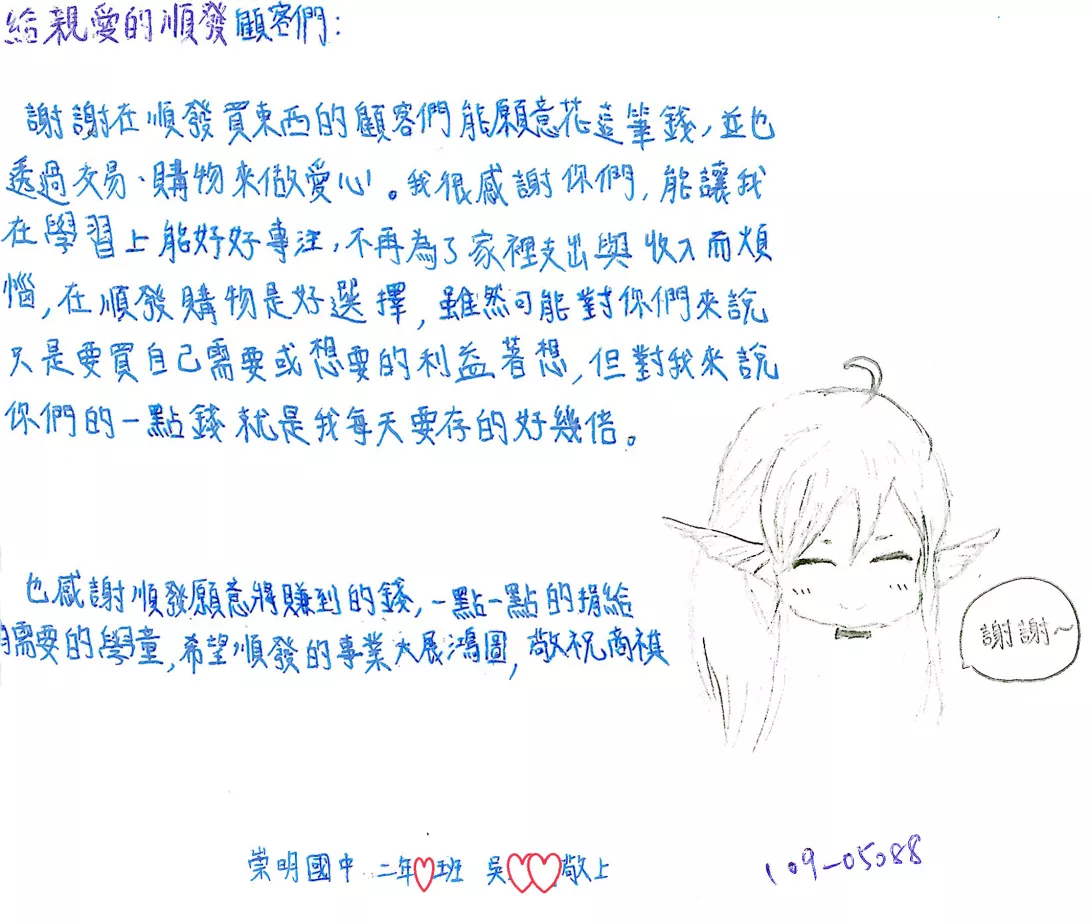 給親愛的順發顧客們：
謝謝在順發買東西的顧客們能願意花這筆錢，並也
透過交易、購物來做愛心。我很感謝你們，能讓我
在學習上能好好專注，不再為了家裡支出與收入而煩
惱，在順發購物是好選擇，雖然可能對你們來說
只是要買自己需要或想要的利益著想，但對我來說
你們的一點錢就是我每天要存的好幾倍。
也感謝順發願意將賺到的錢，一點一點的捐給
需要的學童，希望順發的事業大展鴻圖，敬祝商祺
謝謝～
崇明國中 二年 班 吳 敬上
109-05088